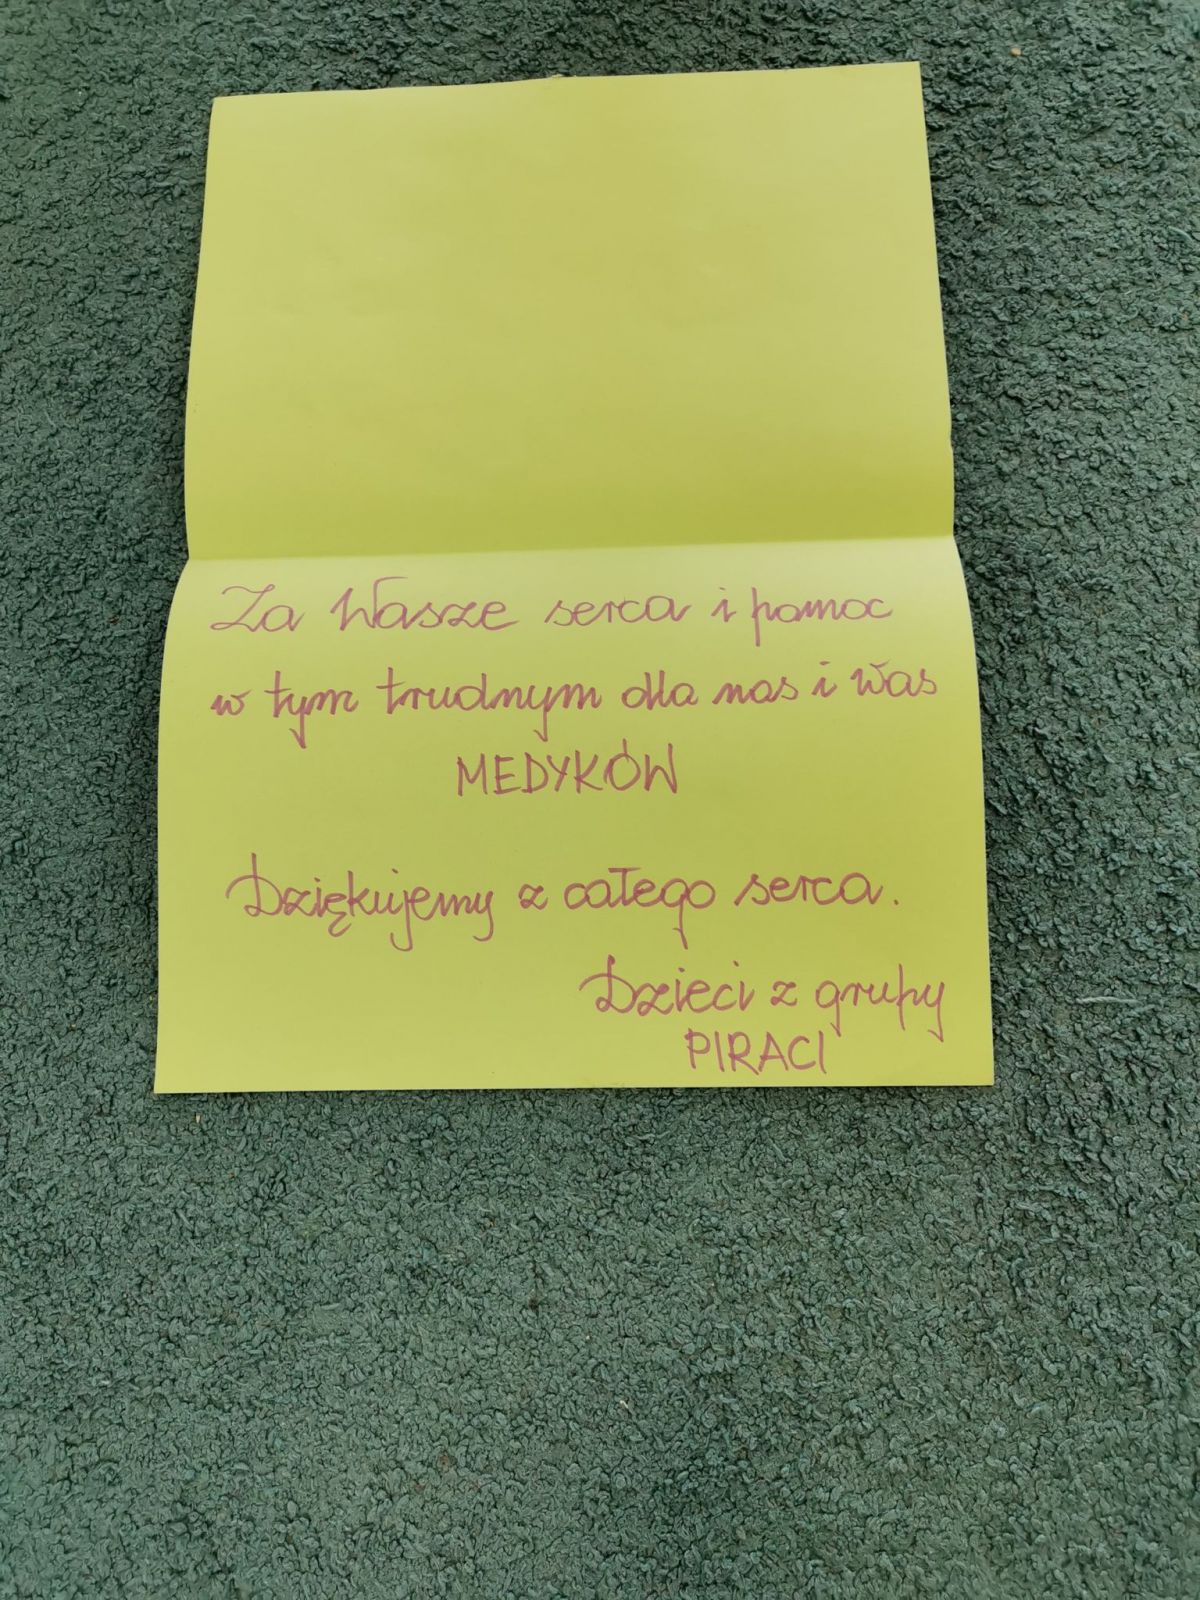 Za Wasze serca i pomoc
w tym trudnym dla nas i Was
MEDYKÓW
Dziękujemy z całego serca.
Dzieci z grupy
PIRACI